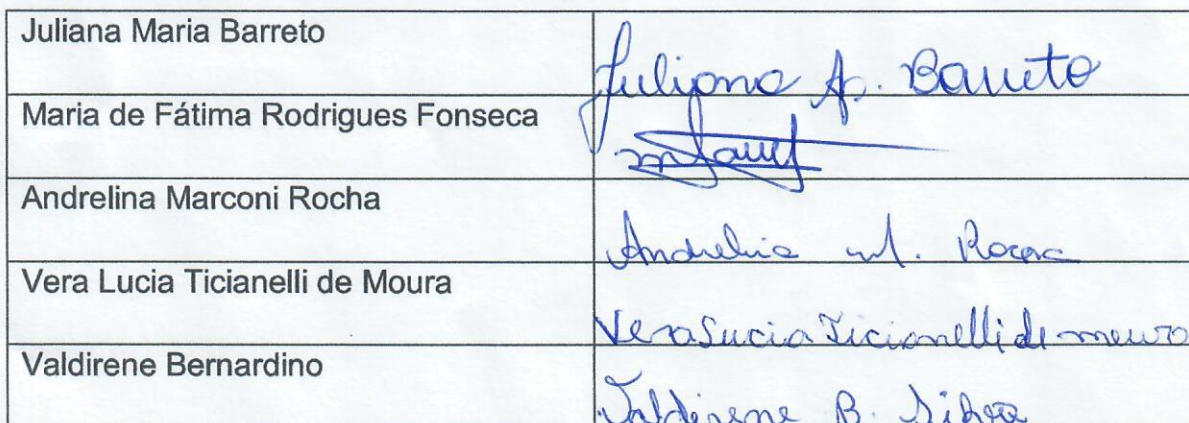 Juliana Maria Barreto
Juliana Ap. Barreto
Maria de Fátima Rodrigues Fonseca
Andrelina Marconi Rocha
Andrelina M. Rocha
Vera Lucia Ticianelli de Moura
Vera Lucia Ticianelli de moura
Valdirene Bernardino
Valdirene B. Silva